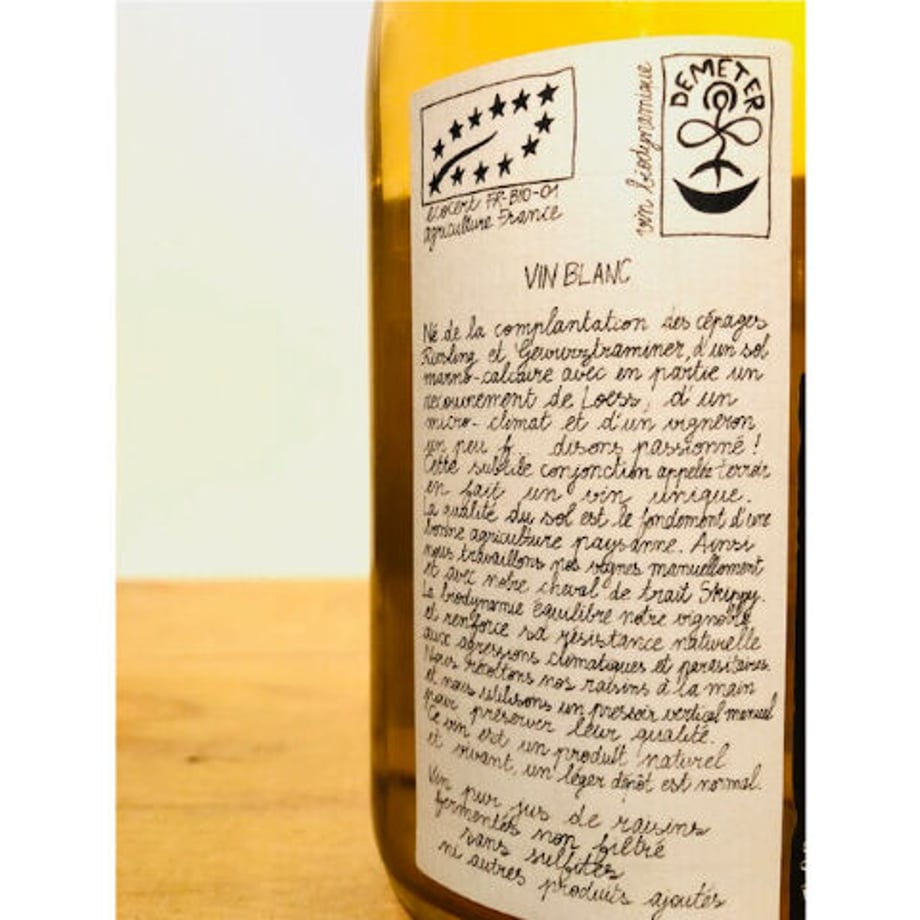 ecocert FR-BIO-01
agriculture France
vin biodynamique
DEMETER
VIN BLANC
Né de la complantation des cépages
Riesling et Gewurztraminer, d'un sol
marno-calcaire avec en partie un
recouvrement de Loess, d'un
micro-climat et d'un vigneron
un peu f disons passionné !
Cette subtile conjonction appelée terroir
en fait un vin unique.
La qualité du sol est le fondement d'une
bonne agriculture paysanne. Ainsi
nous travaillons nos vignes manuellement
et avec notre cheval de trait Skippy.
La biodynamie équilibre notre vignoble
et renforce sa résistance naturelle
aux agressions climatiques et parasitaires.
Nous récoltons nos raisins à la main
et nous utilisons un pressoir vertical manuel
pour préserver leur qualité.
Ce vin est un produit naturel
et vivant, un léger dépôt est normal.
Vin pur jus de raisins
fermentés non filtré
sans sulfites
ni autres produits ajoutés